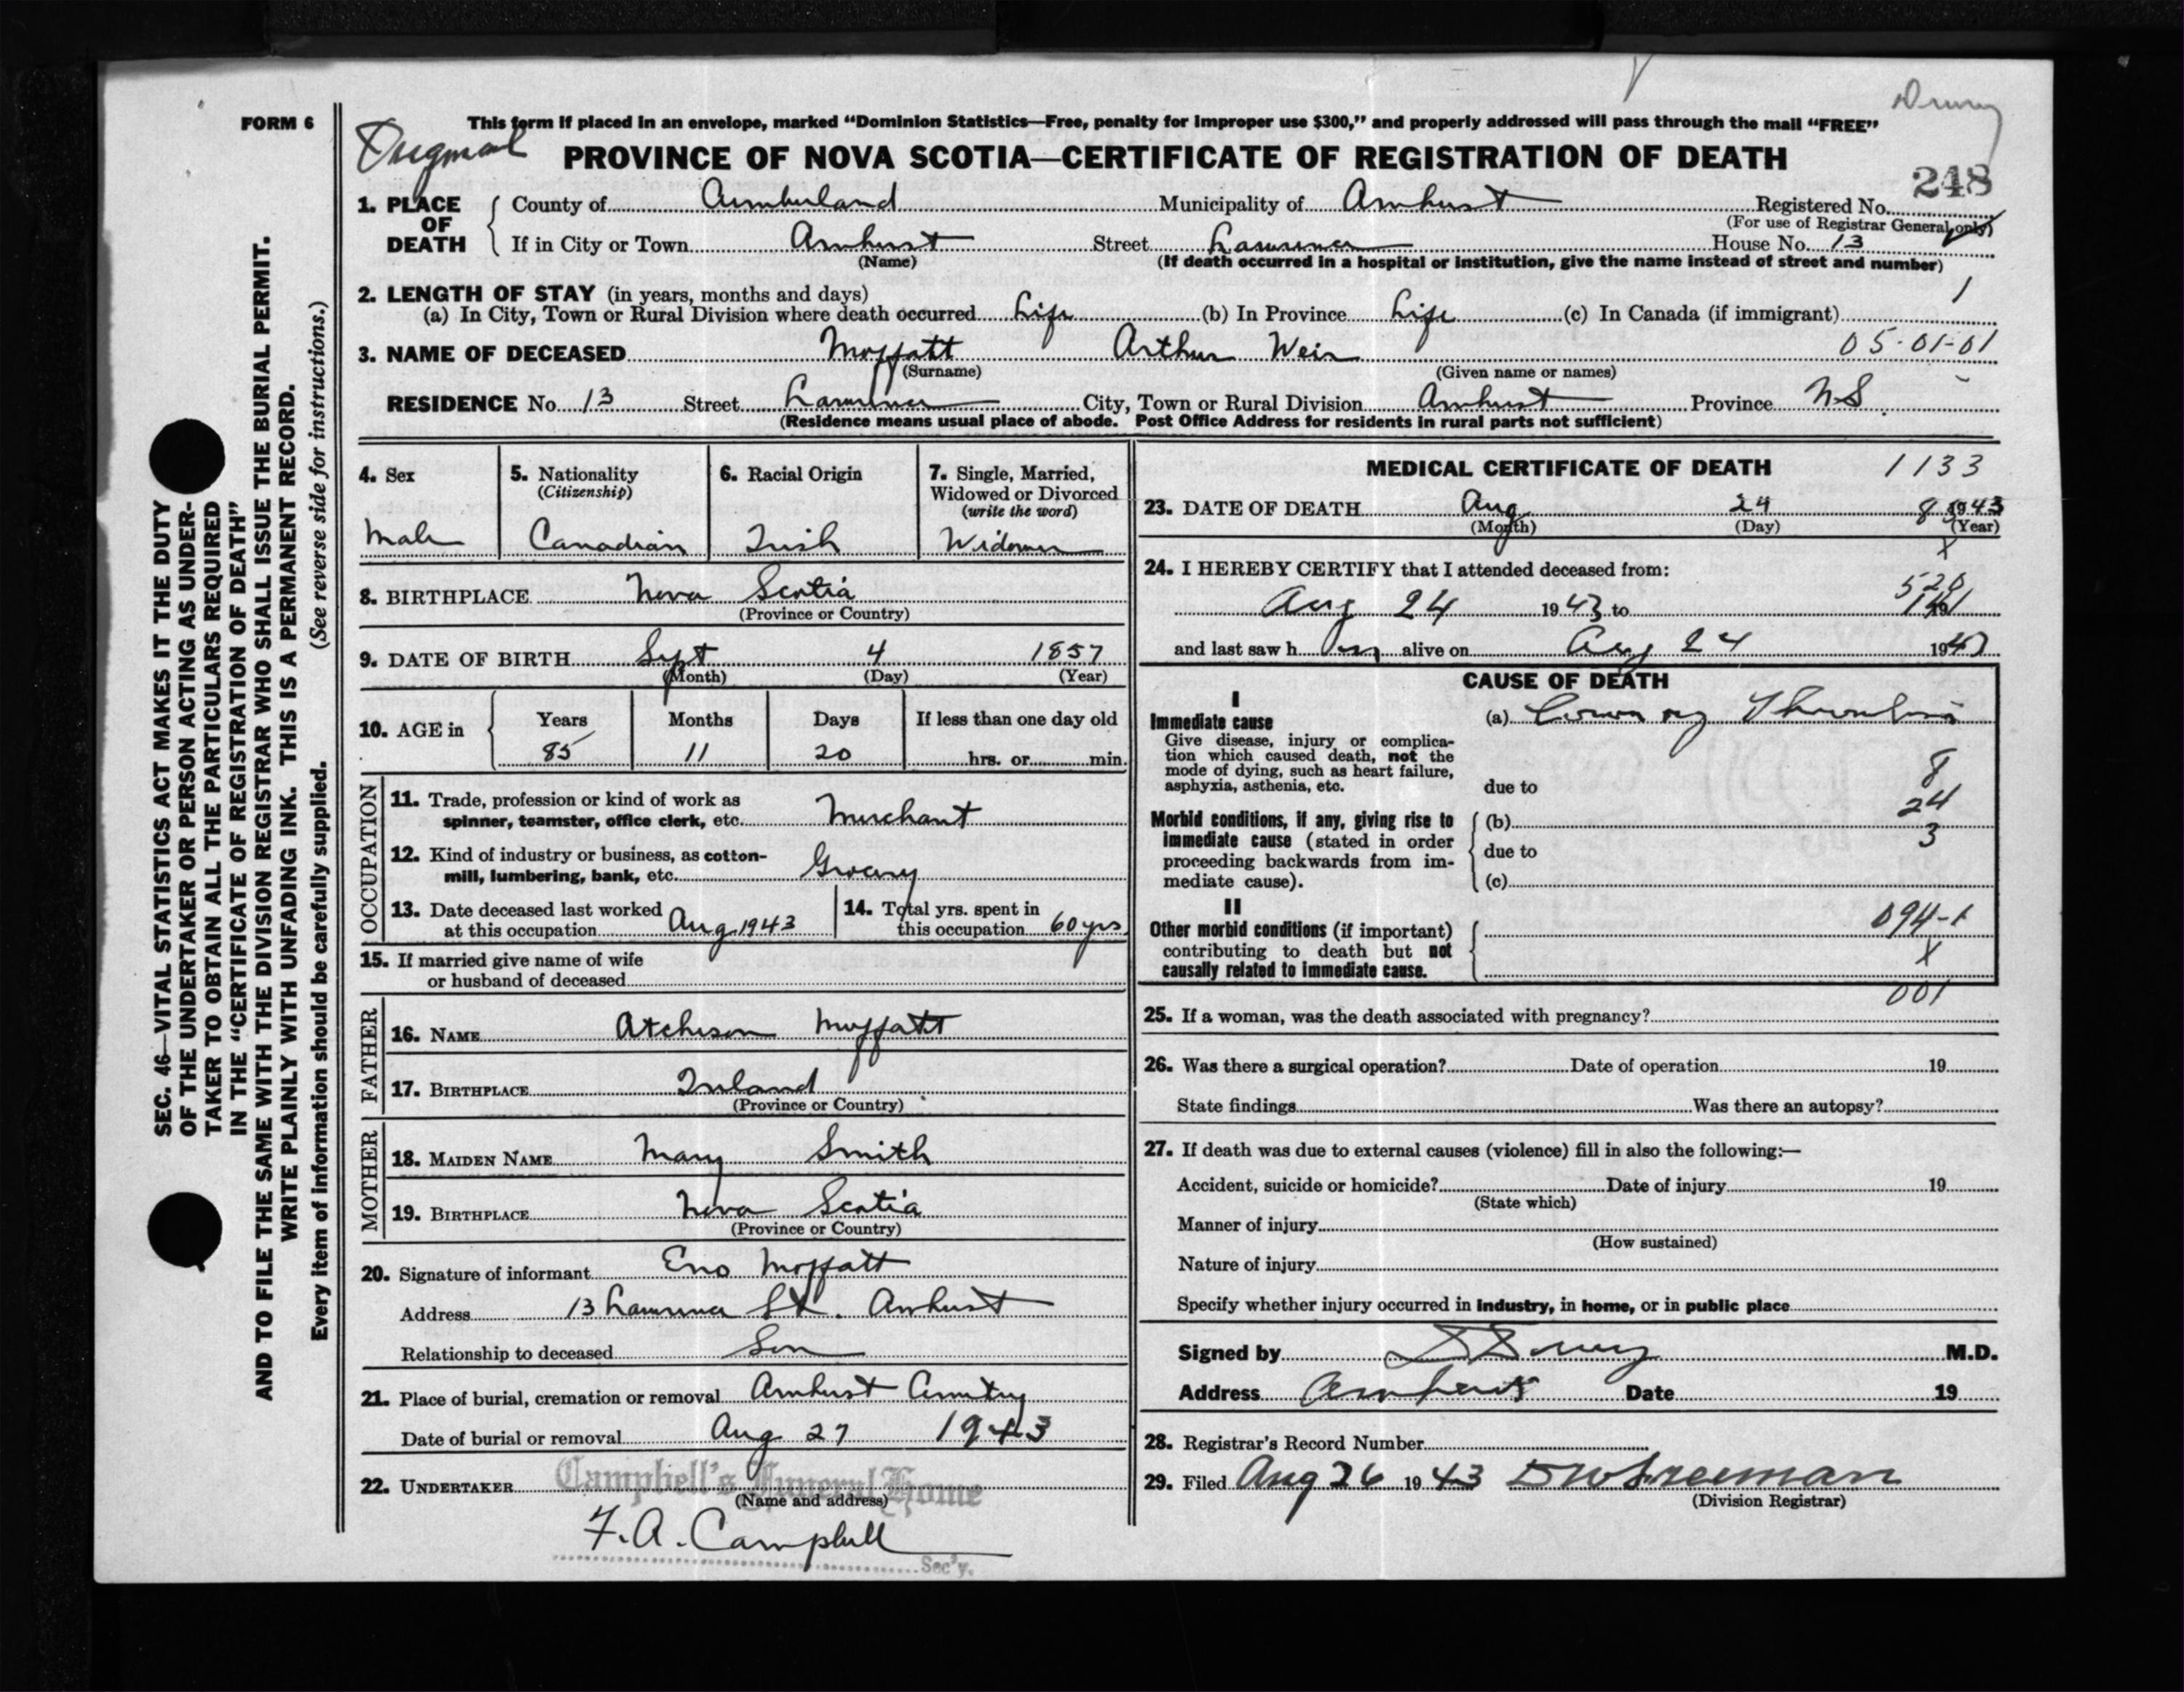 FORM 6
This form if placed in an envelope, marked “Dominion Statistics—Free, penalty for improper use $300,” and properly addressed will pass through the mail “FREE”
PROVINCE OF NOVA SCOTIA—CERTIFICATE OF REGISTRATION OF DEATH
248
1. PLACE OF DEATH
County of Cumberland Municipality of Amherst Registered No.
(For use of Registrar General only)
If in City or Town Amherst Street Lawrence House No. 13
(Name) (If death occurred in a hospital or institution, give the name instead of street and number)
2. LENGTH OF STAY (in years, months and days) 1
(a) In City, Town or Rural Division where death occurred Life (b) In Province Life (c) In Canada (if immigrant)
3. NAME OF DECEASED Moffatt Arthur Weir 05-01-01
(Surname) (Given name or names)
RESIDENCE No. 13 Street Lawrence City, Town or Rural Division Amherst Province N.S.
(Residence means usual place of abode. Post Office Address for residents in rural parts not sufficient)
4. Sex
Male
5. Nationality
(Citizenship)
Canadian
6. Racial Origin
Irish
7. Single, Married,
Widowed or Divorced
(write the word)
Widower
8. BIRTHPLACE Nova Scotia
(Province or Country)
9. DATE OF BIRTH Sept 4 1857
(Month) (Day) (Year)
10. AGE in Years Months Days If less than one day old
85 11 20 hrs. or min.
OCCUPATION
11. Trade, profession or kind of work as
spinner, teamster, office clerk, etc. Merchant
12. Kind of industry or business, as cotton-
mill, lumbering, bank, etc. Grocery
13. Date deceased last worked
at this occupation Aug. 1943
14. Total yrs. spent in
this occupation 60 yrs
15. If married give name of wife
or husband of deceased
FATHER
16. NAME Atcheson Moffatt
17. BIRTHPLACE Ireland
(Province or Country)
MOTHER
18. MAIDEN NAME Mary Smith
19. BIRTHPLACE Nova Scotia
(Province or Country)
20. Signature of informant Eno Moffatt
Address 13 Lawrence St. Amherst
Relationship to deceased Son
21. Place of burial, cremation or removal Amherst Cemetery
Date of burial or removal Aug 27 1943
22. UNDERTAKER Campbell's Funeral Home
(Name and address)
F. A. Campbell
Sec'y.
MEDICAL CERTIFICATE OF DEATH 1133
23. DATE OF DEATH Aug 24 1943
(Month) (Day) (Year)
24. I HEREBY CERTIFY that I attended deceased from:
Aug 24 1943 to
and last saw h alive on Aug 24 1943
CAUSE OF DEATH
I
Immediate cause (a) Coronary Thrombosis
Give disease, injury or complica-
tion which caused death, not the
mode of dying, such as heart failure,
asphyxia, asthenia, etc. due to
8
24
3
Morbid conditions, if any, giving rise to (b)
immediate cause (stated in order
proceeding backwards from im- due to
mediate cause). (c)
II
Other morbid conditions (if important) 094-1
contributing to death but not X
causally related to immediate cause.
001
25. If a woman, was the death associated with pregnancy?
26. Was there a surgical operation? Date of operation 19
State findings Was there an autopsy?
27. If death was due to external causes (violence) fill in also the following:—
Accident, suicide or homicide? Date of injury 19
(State which)
Manner of injury
(How sustained)
Nature of injury
Specify whether injury occurred in industry, in home, or in public place
Signed by M.D.
Address Amherst Date 19
28. Registrar's Record Number
29. Filed Aug 26 1943
(Division Registrar)
SEC. 46—VITAL STATISTICS ACT MAKES IT THE DUTY
OF THE UNDERTAKER OR PERSON ACTING AS UNDER-
TAKER TO OBTAIN ALL THE PARTICULARS REQUIRED
IN THE “CERTIFICATE OF REGISTRATION OF DEATH”
AND TO FILE THE SAME WITH THE DIVISION REGISTRAR WHO SHALL ISSUE THE BURIAL PERMIT.
WRITE PLAINLY WITH UNFADING INK. THIS IS A PERMANENT RECORD.
Every item of information should be carefully supplied. (See reverse side for instructions.)